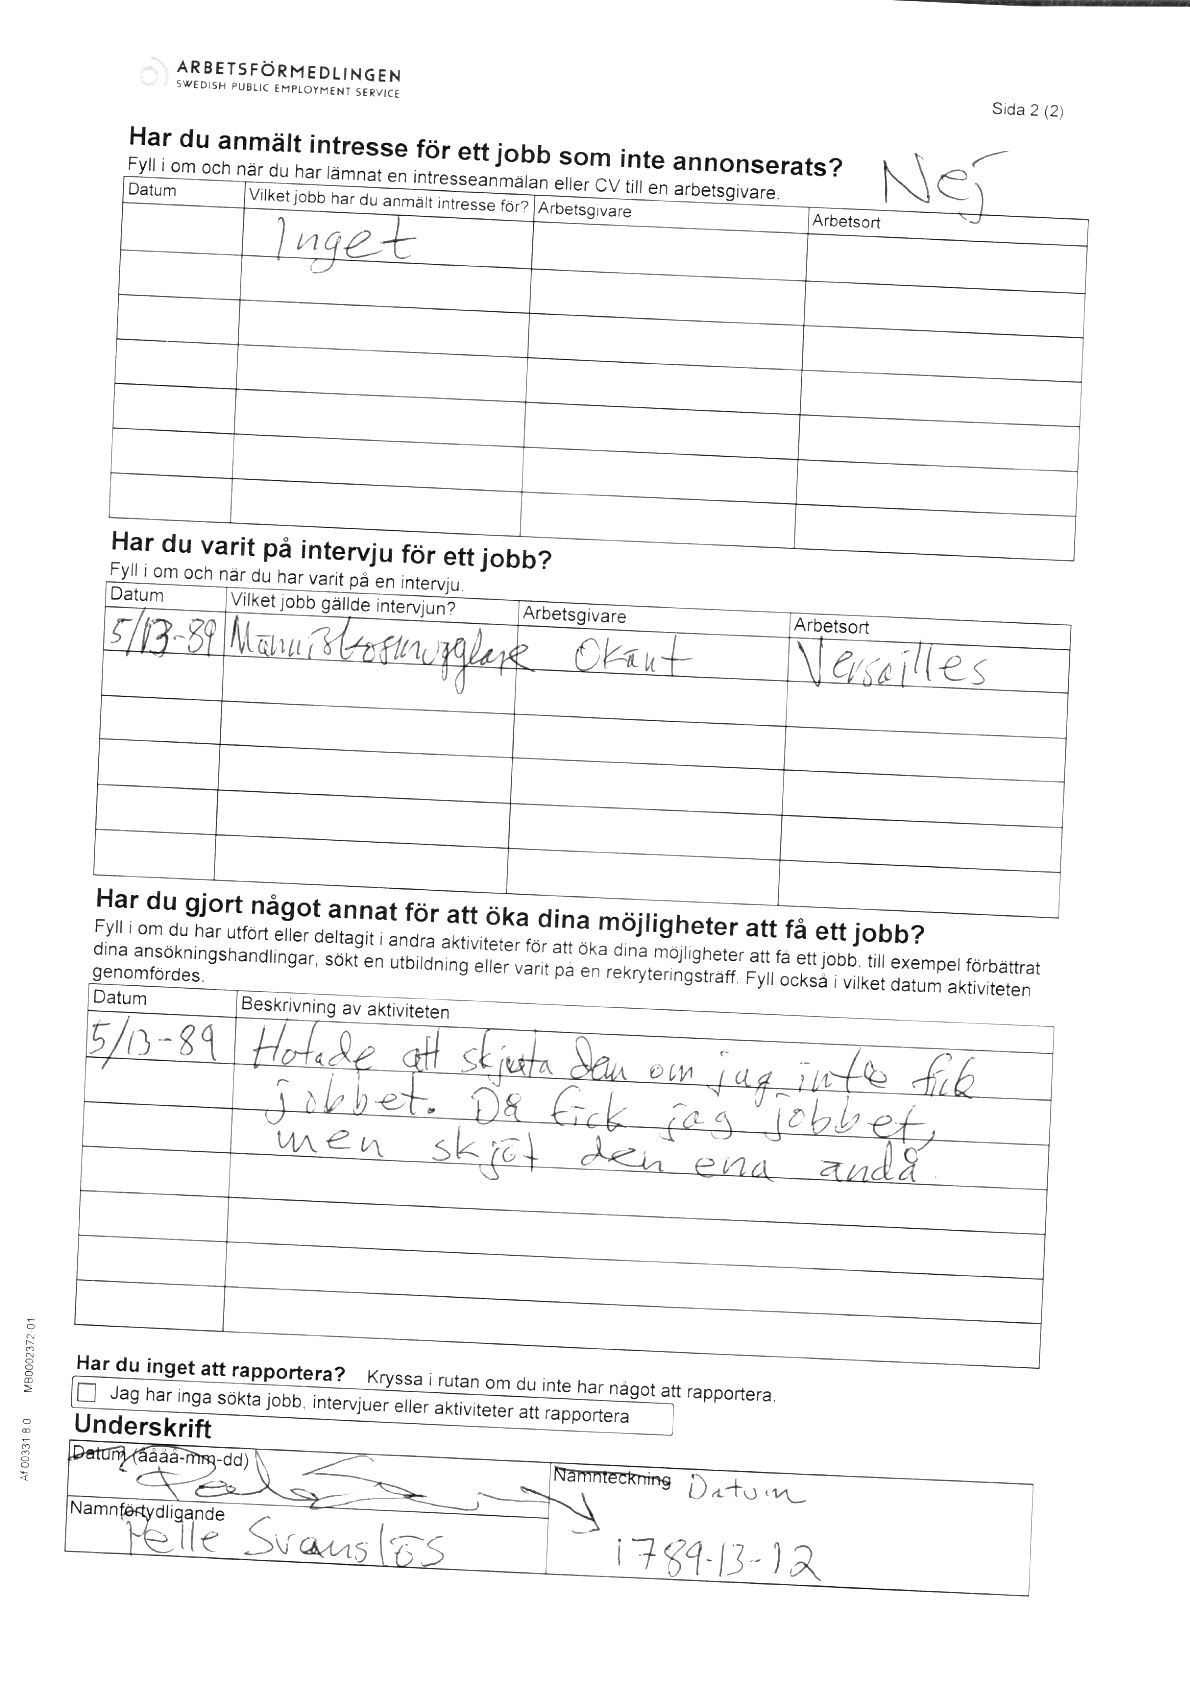 ARBETSFÖRMEDLINGEN
SWEDISH PUBLIC EMPLOYMENT SERVICE
Sida 2 (2)
Har du anmält intresse för ett jobb som inte annonserats? Nej
Fyll i om och när du har lämnat en intresseanmälan eller CV till en arbetsgivare.
Datum Vilket jobb har du anmält intresse för? Arbetsgivare Arbetsort
Inget
Har du varit på intervju för ett jobb?
Fyll i om och när du har varit på en intervju.
Datum Vilket jobb gällde intervjun? Arbetsgivare Arbetsort
5/13-89 Människosmugglare Okänt Versailles
Har du gjort något annat för att öka dina möjligheter att få ett jobb?
Fyll i om du har utfört eller deltagit i andra aktiviteter för att öka dina möjligheter att få ett jobb, till exempel förbättrat
dina ansökningshandlingar, sökt en utbildning eller varit på en rekryteringsträff. Fyll också i vilket datum aktiviteten
genomfördes.
Datum Beskrivning av aktiviteten
5/13-89 Hotade att skjuta dem om jag inte fick
jobbet. Då fick jag jobbet,
men sköt den ena ändå
Har du inget att rapportera? Kryssa i rutan om du inte har något att rapportera.
Jag har inga sökta jobb, intervjuer eller aktiviteter att rapportera
Underskrift
Datum (åååå-mm-dd)
Namnteckning Datum
Namnförtydligande
Pelle Svanslös
1789-13-12
Af 00331 8.0 MB0002372-01